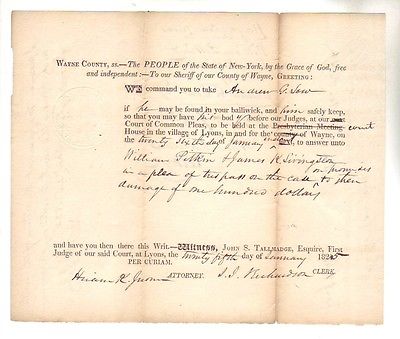 WAYNE COUNTY, ss.—The PEOPLE of the State of New-York, by the Grace of God, free
and independent:—To our Sheriff of our County of Wayne, GREETING:
WE command you to take Andrew G. Low
if he may be found in your bailiwick, and him safely keep,
so that you may have his body before our Judges, at our
Court of Common Pleas, to be held at the Presbyterian Meeting court
House in the village of Lyons, in and for the county of Wayne, on
the twenty sixth day of January instant next, to answer unto
William Pitkin & James K Livingston
in a plea of trespass on the case on promises to their
damage of one hundred dollars
and have you then there this Writ.—Witness, JOHN S. TALLMADGE, Esquire, First
Judge of our said Court, at Lyons, the twenty fifth day of January 1825
PER CURIAM.
Hiram K. ATTORNEY. I. J. Richardson CLERK.